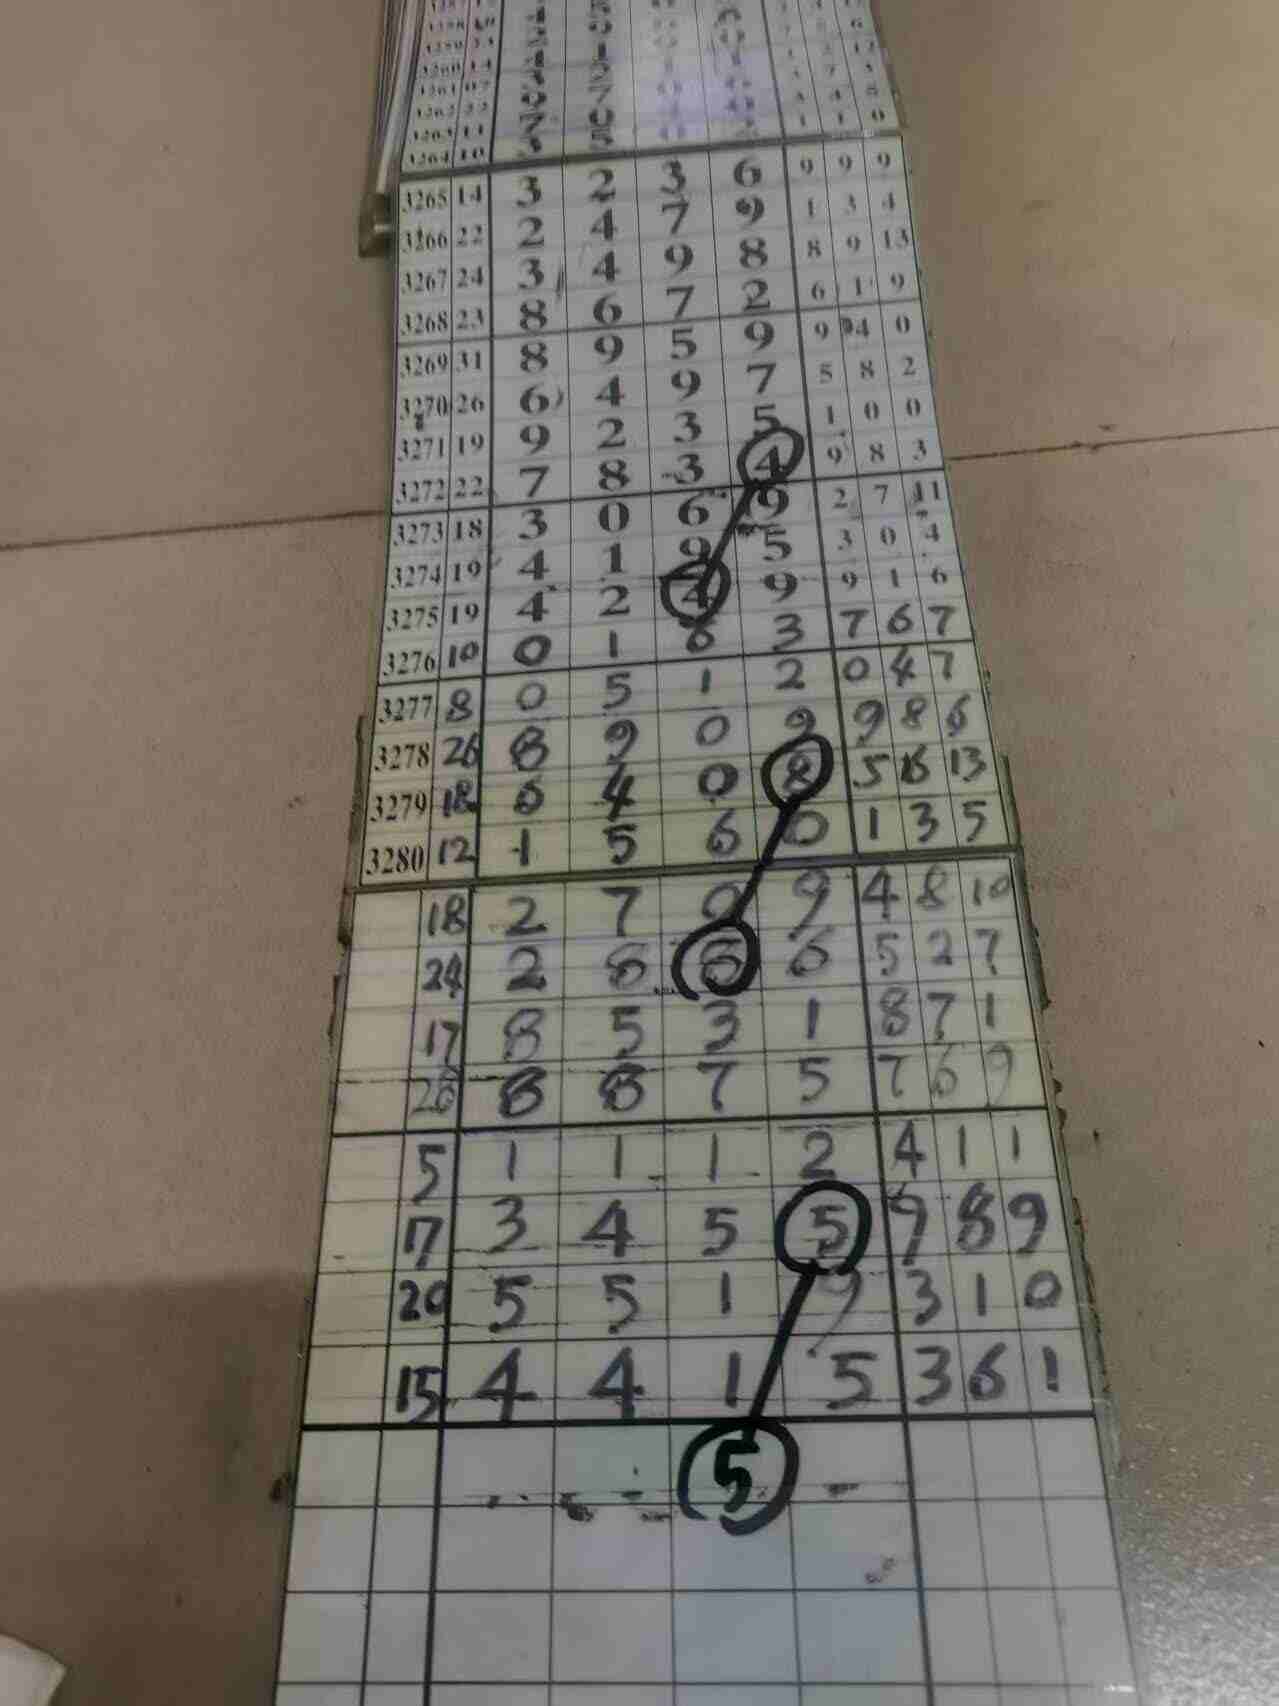 3264 10
3265 14 3 2 3 6 9 9 9
3266 22 2 4 7 9 1 3 4
3267 24 3 4 9 8 8 9 13
3268 23 8 6 7 2 6 1 9
3269 31 8 9 5 9 9 4 0
3270 26 6 4 9 7 5 8 2
3271 19 9 2 3 5 1 0 0
3272 22 7 8 3 4 9 8 3
3273 18 3 0 6 9 2 7 11
3274 19 4 1 9 5 3 0 4
3275 19 4 2 4 9 9 1 6
3276 10 0 1 6 3 7 6 7
3277 8 0 5 1 2 0 4 7
3278 26 8 9 0 9 9 8 6
3279 18 6 4 0 8 5 16 13
3280 12 1 5 6 0 1 3 5
18 2 7 0 9 4 8 10
24 2 6 6 5 2 7
17 8 5 3 1 8 7 1
28 8 8 7 5 7 6 9
5 1 1 1 2 4 1 1
17 3 4 5 5 9 8 9
20 5 5 1 9 3 1 0
15 4 4 1 5 3 6 1
5